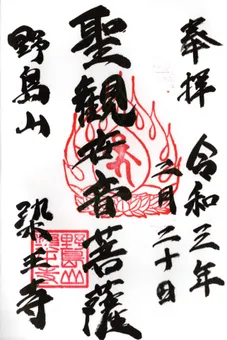 奉拝
令和三年
月二十日
聖観世音菩薩
野島山
染王寺
野島山
染王寺